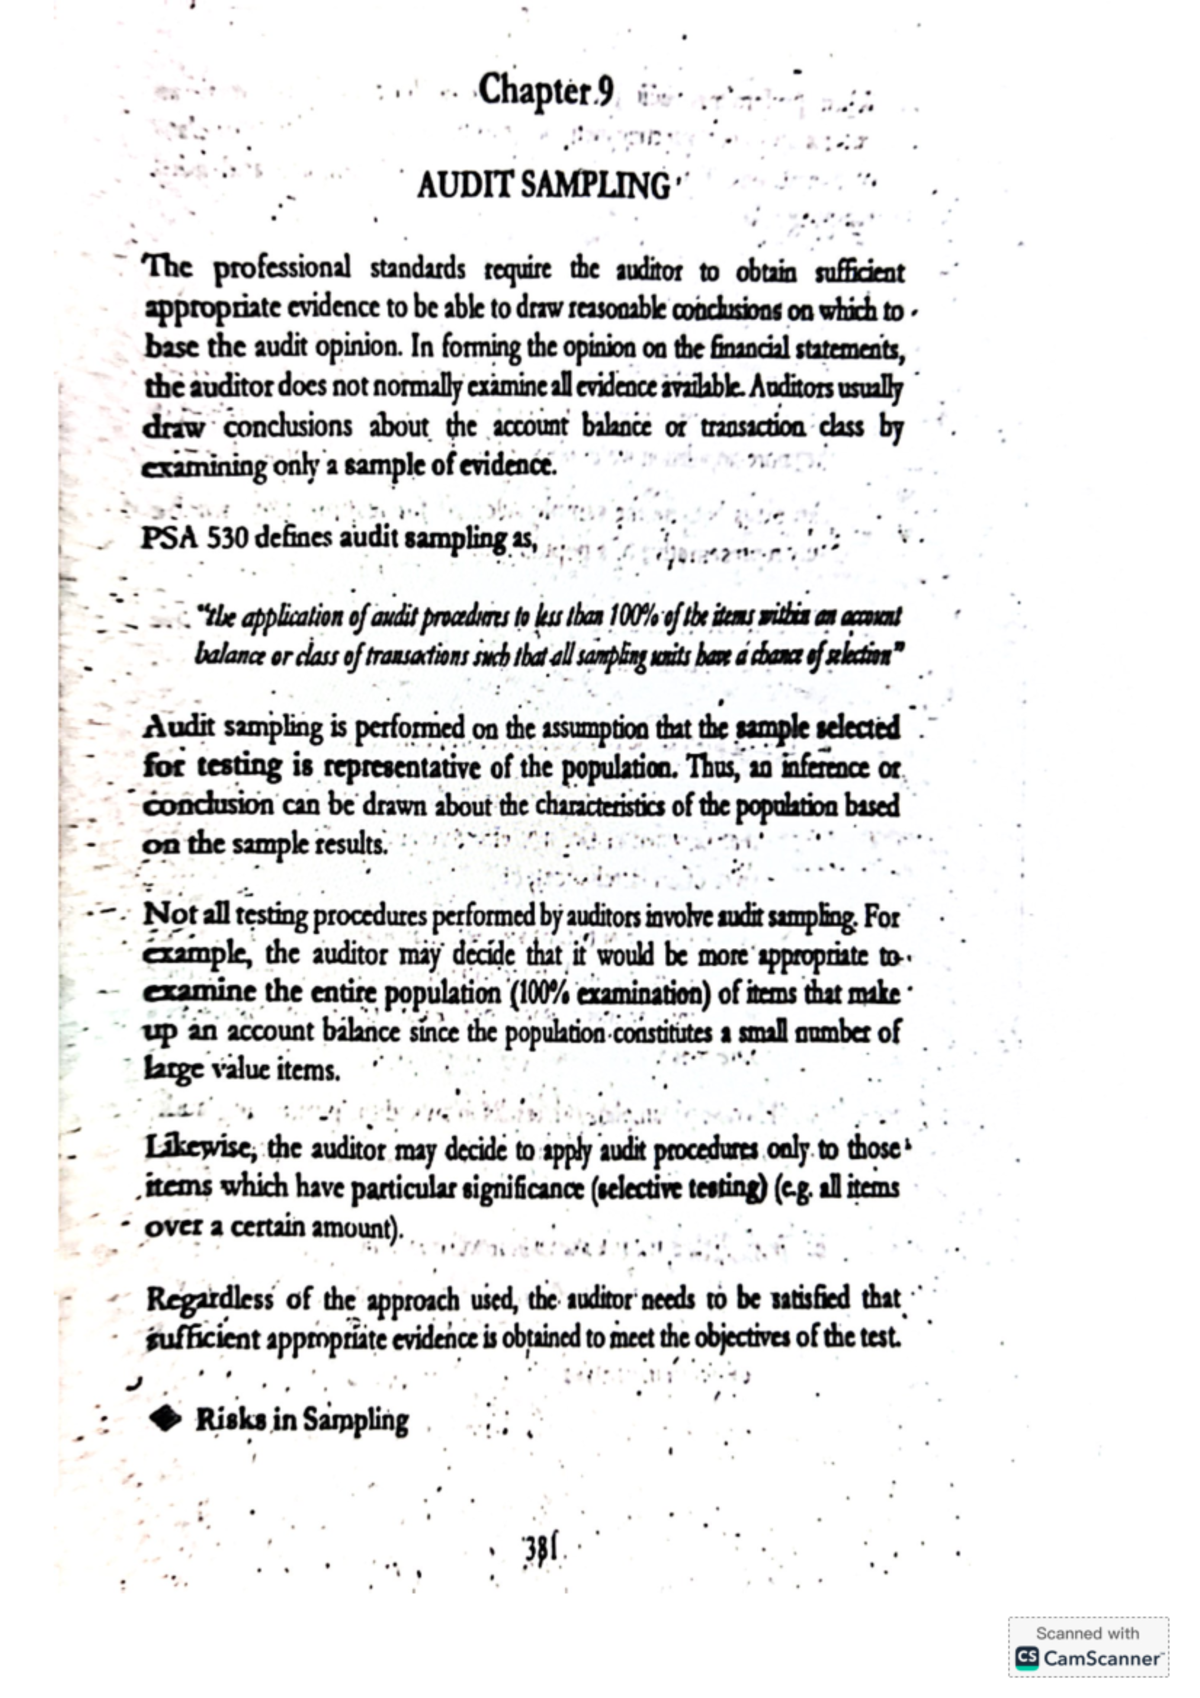 Chapter 9
AUDIT SAMPLING
The professional standards require the auditor to obtain sufficient
appropriate evidence to be able to draw reasonable conclusions on which to
base the audit opinion. In forming the opinion on the financial statements,
the auditor does not normally examine all evidence available. Auditors usually
draw conclusions about the account balance or transaction class by
examining only a sample of evidence.
PSA 530 defines audit sampling as,
“the application of audit procedures to less than 100% of the items within an account
balance or class of transactions such that all sampling units have a chance of selection”
Audit sampling is performed on the assumption that the sample selected
for testing is representative of the population. Thus, an inference or
conclusion can be drawn about the characteristics of the population based
on the sample results.
Not all testing procedures performed by auditors involve audit sampling. For
example, the auditor may decide that it would be more appropriate to
examine the entire population (100% examination) of items that make
up an account balance since the population constitutes a small number of
large value items.
Likewise, the auditor may decide to apply audit procedures only to those
items which have particular significance (selective testing) (e.g. all items
over a certain amount).
Regardless of the approach used, the auditor needs to be satisfied that
sufficient appropriate evidence is obtained to meet the objectives of the test.
◆ Risks in Sampling
381
Scanned with
CS CamScanner